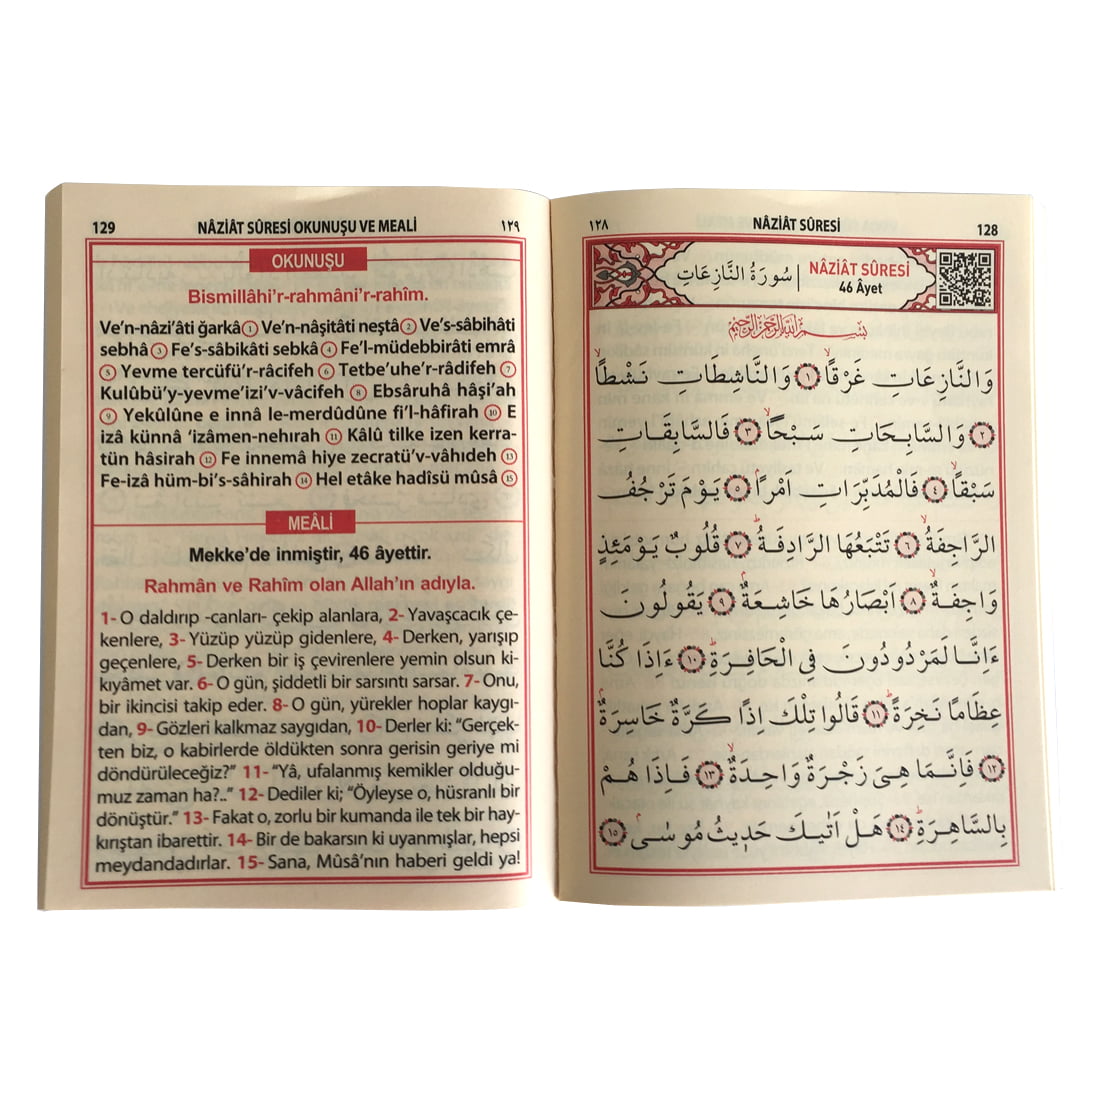 129 NÂZİÂT SÛRESİ OKUNUŞU VE MEALİ ١٢٩
OKUNUŞU
Bismillâhi’r-rahmâni’r-rahîm.
Ve’n-nâzi’âti ğarkâ 1 Ve’n-nâşitâti neştâ 2 Ve’s-sâbihâti
sebhâ 3 Fe’s-sâbikâti sebkâ 4 Fe’l-müdebbirâti emrâ
5 Yevme tercüfü’r-râcifeh 6 Tetbe’uhe’r-râdifeh 7
Kulûbü’y-yevme’izi’v-vâcifeh 8 Ebsâruhâ hâşi’ah
9 Yekûlûne e innâ le-merdûdûne fi’l-hâfirah 10 E
izâ künnâ ‘izâmen-nehırah 11 Kâlû tilke izen kerra-
tün hâsirah 12 Fe innemâ hiye zecratü’v-vâhıdeh 13
Fe-izâ hüm-bi’s-sâhirah 14 Hel etâke hadîsü mûsâ 15
MEÂLİ
Mekke’de inmiştir, 46 âyettir.
Rahmân ve Rahîm olan Allah’ın adıyla.
1- O daldırıp -canları- çekip alanlara, 2- Yavaşcacık çe-
kenlere, 3- Yüzüp yüzüp gidenlere, 4- Derken, yarışıp
geçenlere, 5- Derken bir iş çevirenlere yemin olsun ki-
kıyâmet var. 6- O gün, şiddetli bir sarsıntı sarsar. 7- Onu,
bir ikincisi takip eder. 8- O gün, yürekler hoplar kaygı-
dan, 9- Gözleri kalkmaz saygıdan, 10- Derler ki: “Gerçek-
ten biz, o kabirlerde öldükten sonra gerisin geriye mi
döndürüleceğiz?” 11- “Yâ, ufalanmış kemikler olduğu-
muz zaman ha?..” 12- Dediler ki; “Öyleyse o, hüsranlı bir
dönüştür.” 13- Fakat o, zorlu bir kumanda ile tek bir hay-
kırıştan ibarettir. 14- Bir de bakarsın ki uyanmışlar, hepsi
meydandadırlar. 15- Sana, Mûsâ’nın haberi geldi ya!
١٢٨ NÂZİÂT SÛRESİ 128
سُورَةُ النَّازِعَاتِ
NÂZİÂT SÛRESİ
46 Âyet
بِسْمِ اللهِ الرَّحْمٰنِ الرَّحِيمِ
وَالنَّازِعَاتِ غَرْقًاۙ ١ وَالنَّاشِطَاتِ نَشْطًاۙ
٢ وَالسَّابِحَاتِ سَبْحًاۙ ٣ فَالسَّابِقَاتِ
سَبْقًاۙ ٤ فَالْمُدَبِّرَاتِ اَمْرًاۢ ٥ يَوْمَ تَرْجُفُ
الرَّاجِفَةُۙ ٦ تَتْبَعُهَا الرَّادِفَةُۜ ٧ قُلُوبٌ يَوْمَئِذٍ
وَاجِفَةٌۙ ٨ اَبْصَارُهَا خَاشِعَةٌۢ ٩ يَقُولُونَ
ءَاِنَّا لَمَرْدُودُونَ فِي الْحَافِرَةِۜ ١٠ ءَاِذَا كُنَّا
عِظَامًا نَخِرَةًۜ ١١ قَالُوا تِلْكَ اِذًا كَرَّةٌ خَاسِرَةٌۢ
١٢ فَاِنَّمَا هِيَ زَجْرَةٌ وَاحِدَةٌۙ ١٣ فَاِذَا هُمْ
بِالسَّاهِرَةِۜ ١٤ هَلْ اَتٰيكَ حَدِيثُ مُوسٰىۢ ١٥